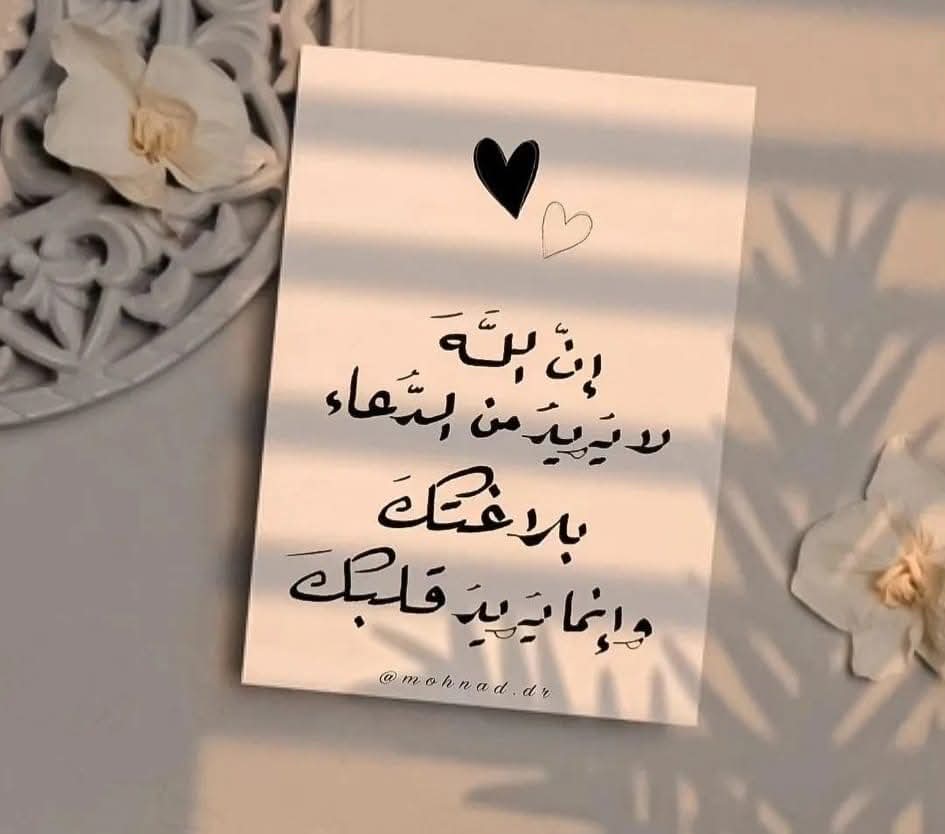 إنَّ اللَّهَ
لا يُريدُ من الدُّعاء
بلاغتكَ
وإنما يُريدُ قلبكَ
@mohnad.dr